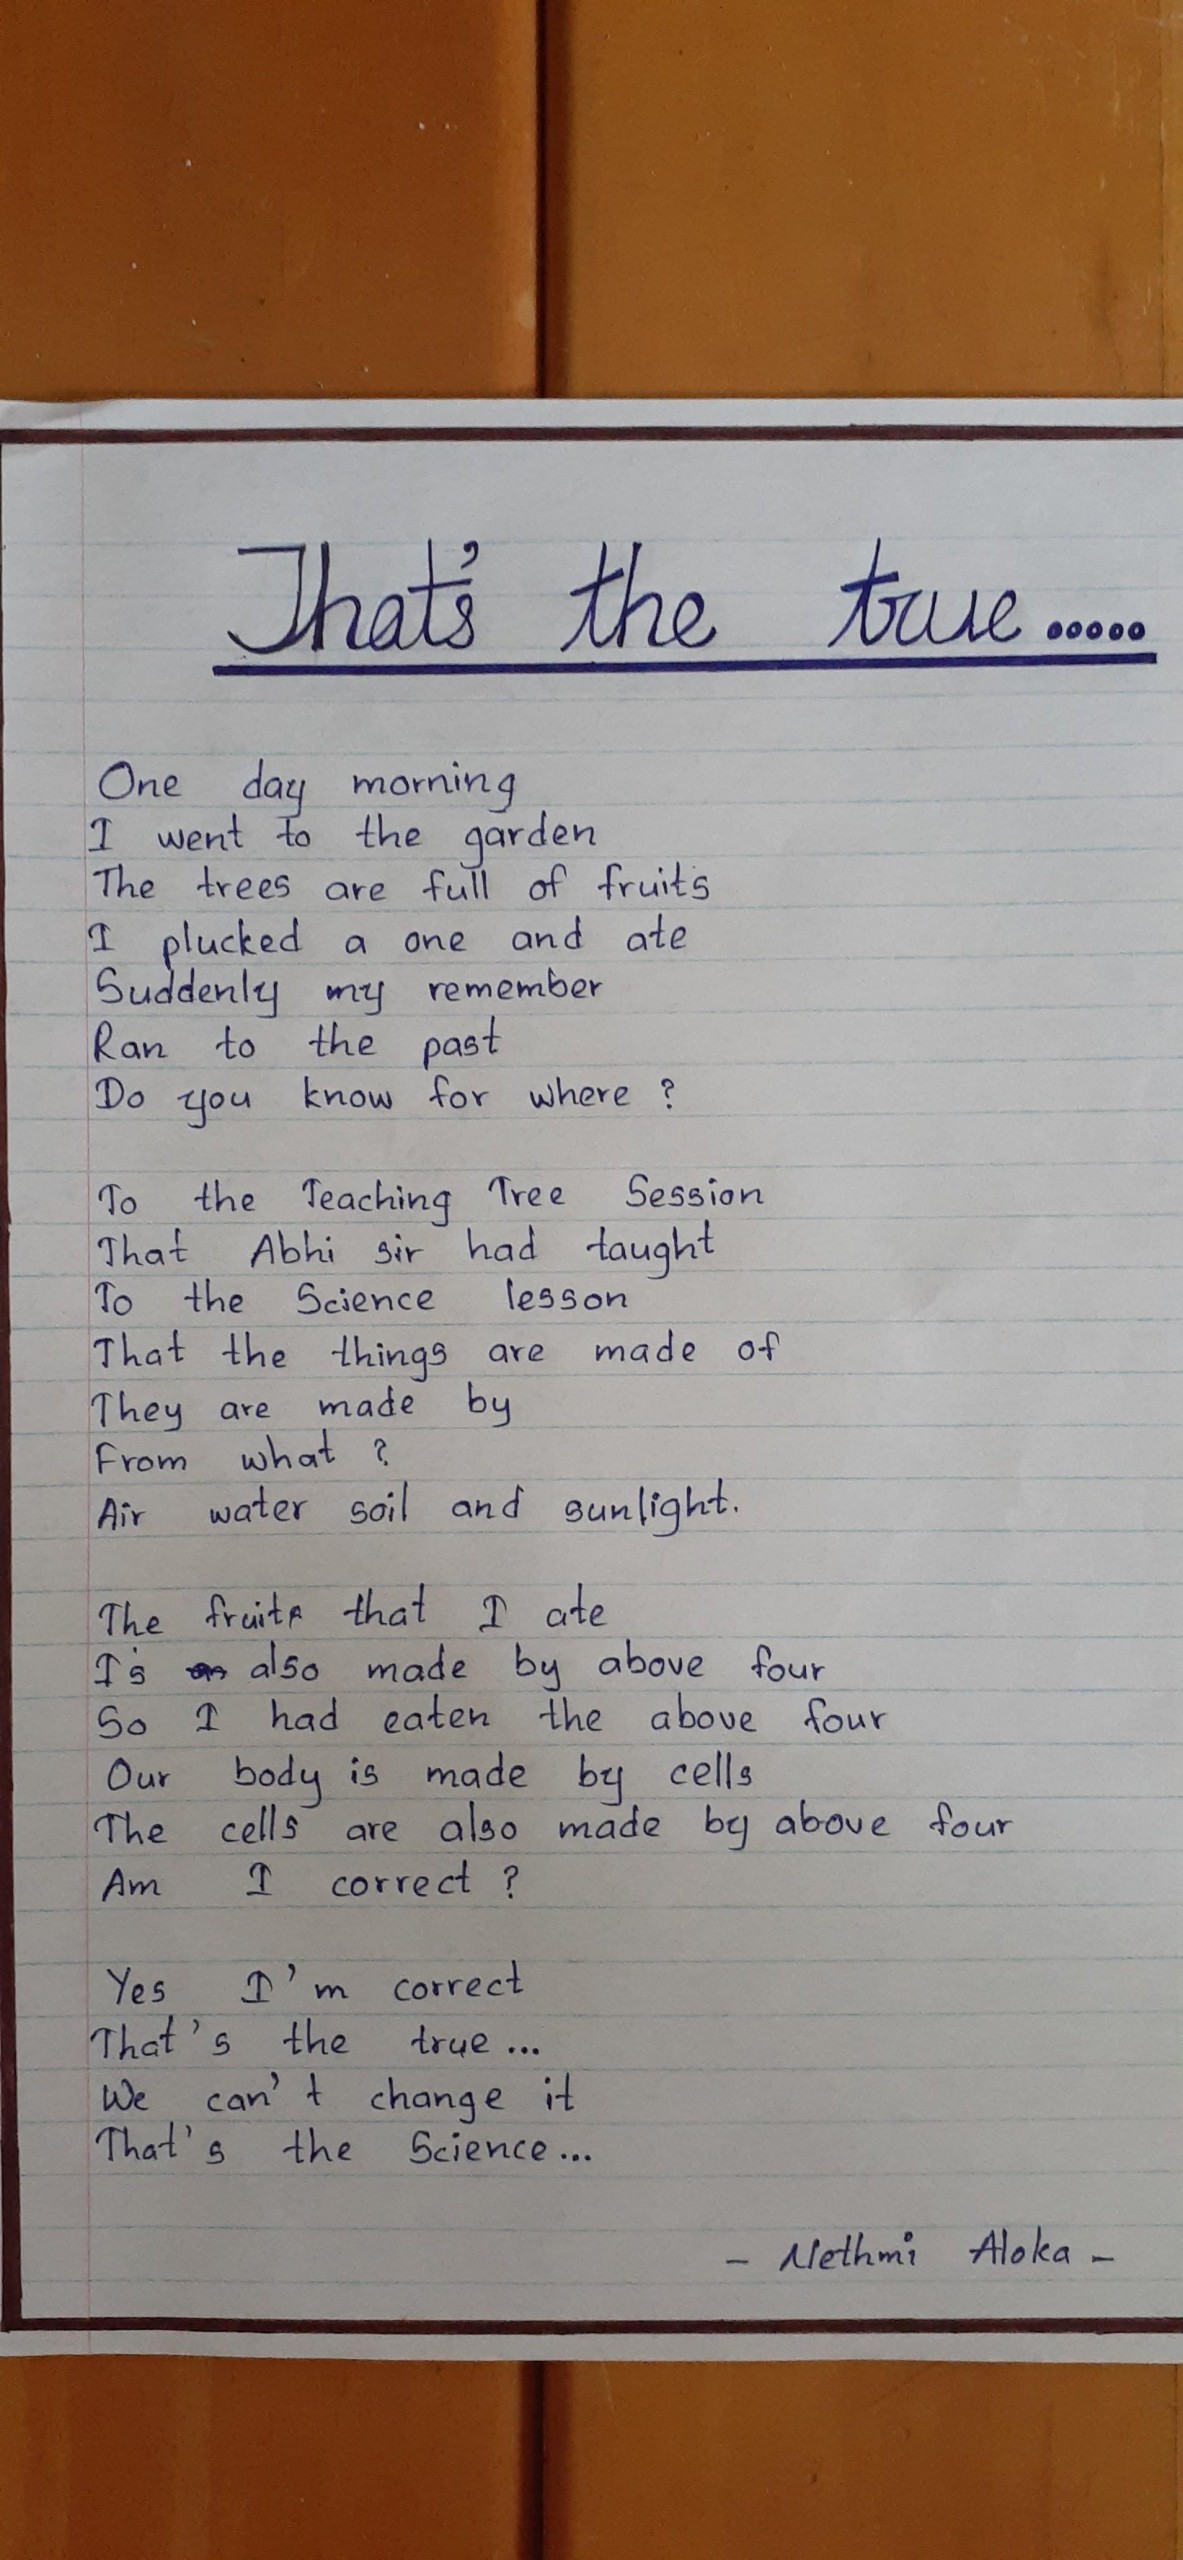 That's the true.....
One day morning
I went to the garden
The trees are full of fruits
I plucked a one and ate
Suddenly my remember
Ran to the past
Do you know for where ?
To the Teaching Tree Session
That Abhi sir had taught
To the Science lesson
That the things are made of
They are made by
From what ?
Air water soil and sunlight.
The fruit that I ate
Is also made by above four
So I had eaten the above four
Our body is made by cells
The cells are also made by above four
Am I correct ?
Yes I'm correct
That's the true...
We can't change it
That's the Science...
- Nethmi Aloka -